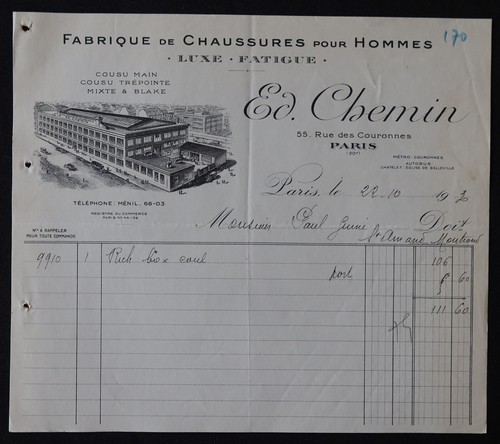 170
FABRIQUE DE CHAUSSURES POUR HOMMES
· LUXE · FATIGUE ·
COUSU MAIN
COUSU TRÉPOINTE
MIXTE & BLAKE
Ed. Chemin
55. Rue des Couronnes
PARIS
(20e)
MÉTRO: COURONNES
AUTOBUS
CHATELET-ÉGLISE DE BELLEVILLE
TÉLÉPHONE: MÉNIL. 66-03
REGISTRE DU COMMERCE
Paris, le 22.10 1930
Monsieur Paul Doit
St Amand Montrond
Nos A RAPPELER
POUR TOUTE COMMANDE
9910 1 Rich box coul 106
port 5 60
111 60